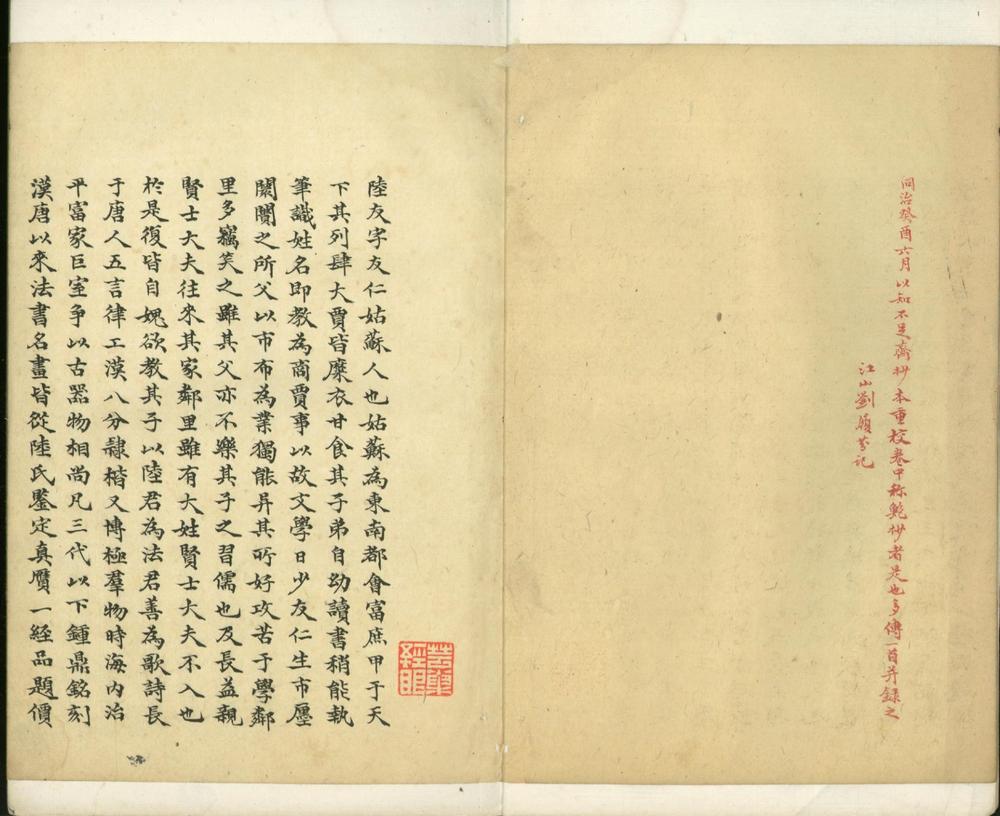 同治癸酉六月以知不足齋抄本重校卷中称鮑抄者是也多傳一首并録之
江山劉履芬記
陸友字友仁姑蘇人也姑蘇為東南都會富庶甲于天
下其列肆大賈皆糜衣甘食其子弟自幼讀書稍能執
筆識姓名即教為商賈事以故文學日少友仁生市廛
闤闠之所父以市布為業獨能异其所好攻苦于學鄰
里多竊笑之雖其父亦不樂其子之習儒也及長益親
賢士大夫往來其家鄰里雖有大姓賢士大夫不入也
於是復皆自媿欲教其子以陸君為法君善為歌詩長
于唐人五言律工漢八分隸楷又博極羣物時海内治
平富家巨室争以古器物相尚凡三代以下鍾鼎銘刻
漢唐以來法書名畫皆從陸氏鑒定真贋一經品題價